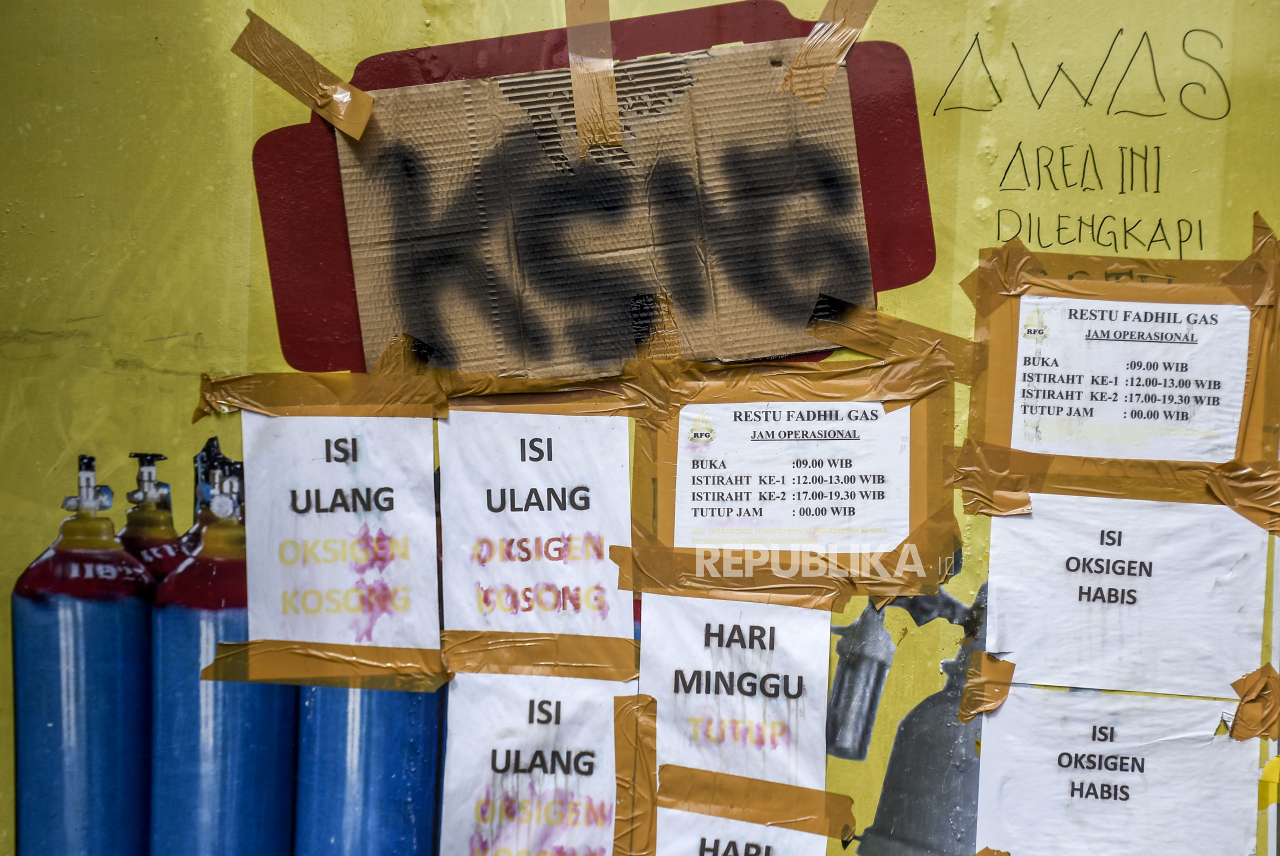 AWAS
AREA INI
DILENGKAPI
RESTU FADHIL GAS
JAM OPERASIONAL
RFG
BUKA :09.00 WIB
ISTIRAHT KE-1 :12.00-13.00 WIB
ISTIRAHT KE-2 :17.00-19.30 WIB
TUTUP JAM : 00.00 WIB
ISI
ULANG
OKSIGEN
KOSONG
ISI
ULANG
OKSIGEN
KOSONG
RESTU FADHIL GAS
JAM OPERASIONAL
RFG
BUKA :09.00 WIB
ISTIRAHT KE-1 :12.00-13.00 WIB
ISTIRAHT KE-2 :17.00-19.30 WIB
TUTUP JAM : 00.00 WIB
REPUBLIKA.id
ISI
OKSIGEN
HABIS
HARI
MINGGU
TUTUP
ISI
ULANG
OKSIGEN
ISI
OKSIGEN
HABIS
HARI